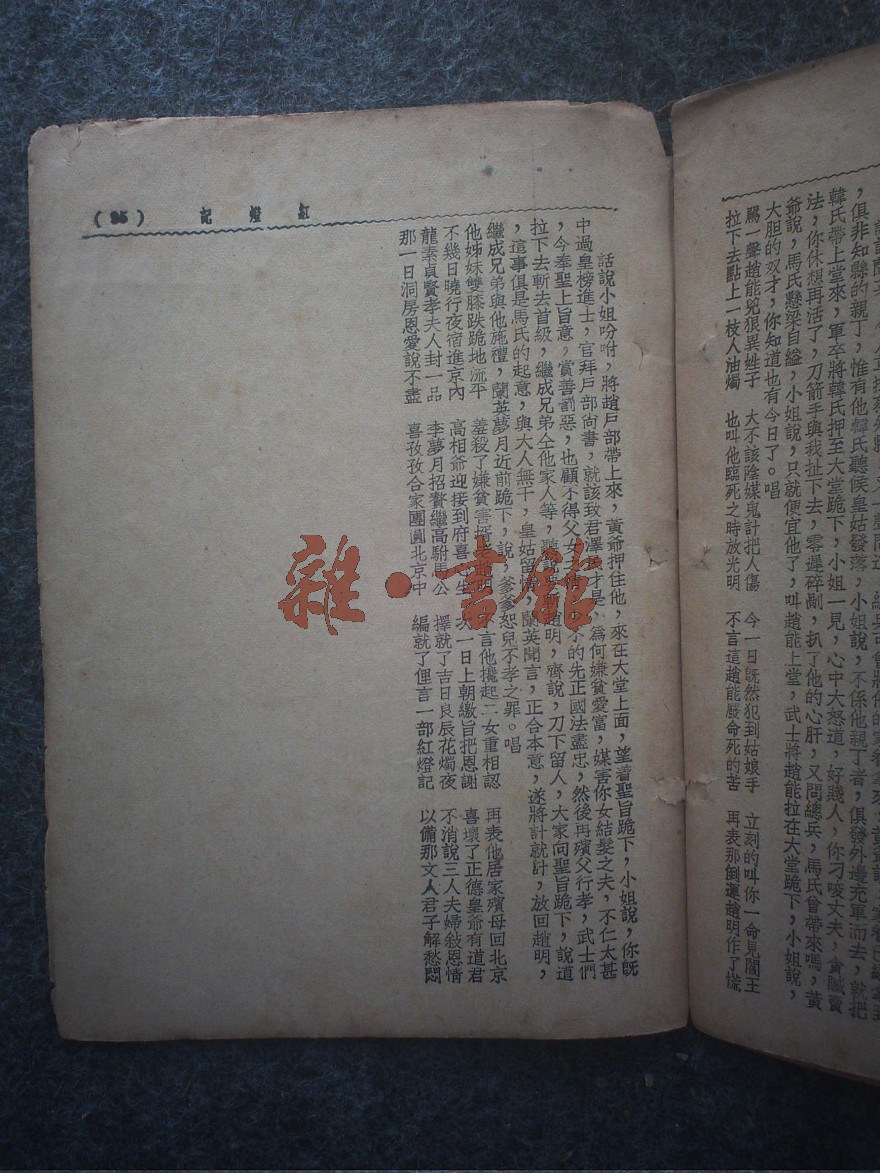 ，俱非知縣的親丁，惟有他韓氏聽候皇姑發落，小姐說，不係他親丁者，俱發外邊充軍而去，就把
韓氏帶上堂來，軍卒將韓氏押至大堂跪下，小姐一見，心中大怒道，好賤人，你刁唆丈夫，貪贓賣
法，你休想再活了，刀箭手與我扯下去，零遲碎剮，扒了他的心肝，又問總兵，馬氏曾帶來嗎，黃
爺說，馬氏懸梁自縊，小姐說，只就便宜他了，叫趙能上堂，武士將趙能拉在大堂跪下，小姐說，
大胆的奴才，你知道也有今日了。唱
罵一聲趙能兇狠異姓子　大不該陰媒鬼計把人傷　今一日旣然犯到姑娘手　立刻的叫你一命見閻王
拉下去點上一枝人油燭　也叫他臨死之時放光明　不言這趙能廢命死的苦　再表那倒運趙明作了慌
紅燈記 (95)
話說小姐吩咐，將趙戶部帶上來，黃爺押住他，來在大堂上面，望着聖旨跪下，小姐說，你旣
中過皇榜進士，官拜戶部尙書，就該致君澤才是，爲何嫌貧愛富，媒害你女結髮之夫，不仁太甚
，今奉聖上旨意，賞善罰惡，也顧不得父女的先正國法盡忠，然後再殯父行孝，武士們
拉下去斬去首級，繼成兄弟仝他家人等，聽說斬趙明，齊說，刀下留人，大家向聖旨跪下，說道
，這事俱是馬氏的起意，與大人無干，皇姑留情，蘭英聞言，正合本意，遂將計就計，放回趙明，
繼成兄弟與他施禮，蘭英夢月近前跪下，說，爹爹恕兒不孝之罪。唱
他姊妹雙膝跌跪地流平　羞殺了嫌貧害婿老趙明　不言他攙起二女重相認　再表他居家殯母回北京
不幾日曉行夜宿進京內　高相爺迎接到府喜生　次一日上朝繳旨把恩謝　喜壞了正德皇爺有道君
龍素貞賢孝夫人封一品　李夢月招贅繼高駙馬公　擇就了吉日良辰花燭夜　不消說三人夫婦敍恩情
那一日洞房恩愛說不盡　喜孜孜合家團圓北京中　編就了俚言一部紅燈記　以備那文人君子解愁悶
雜·書舘